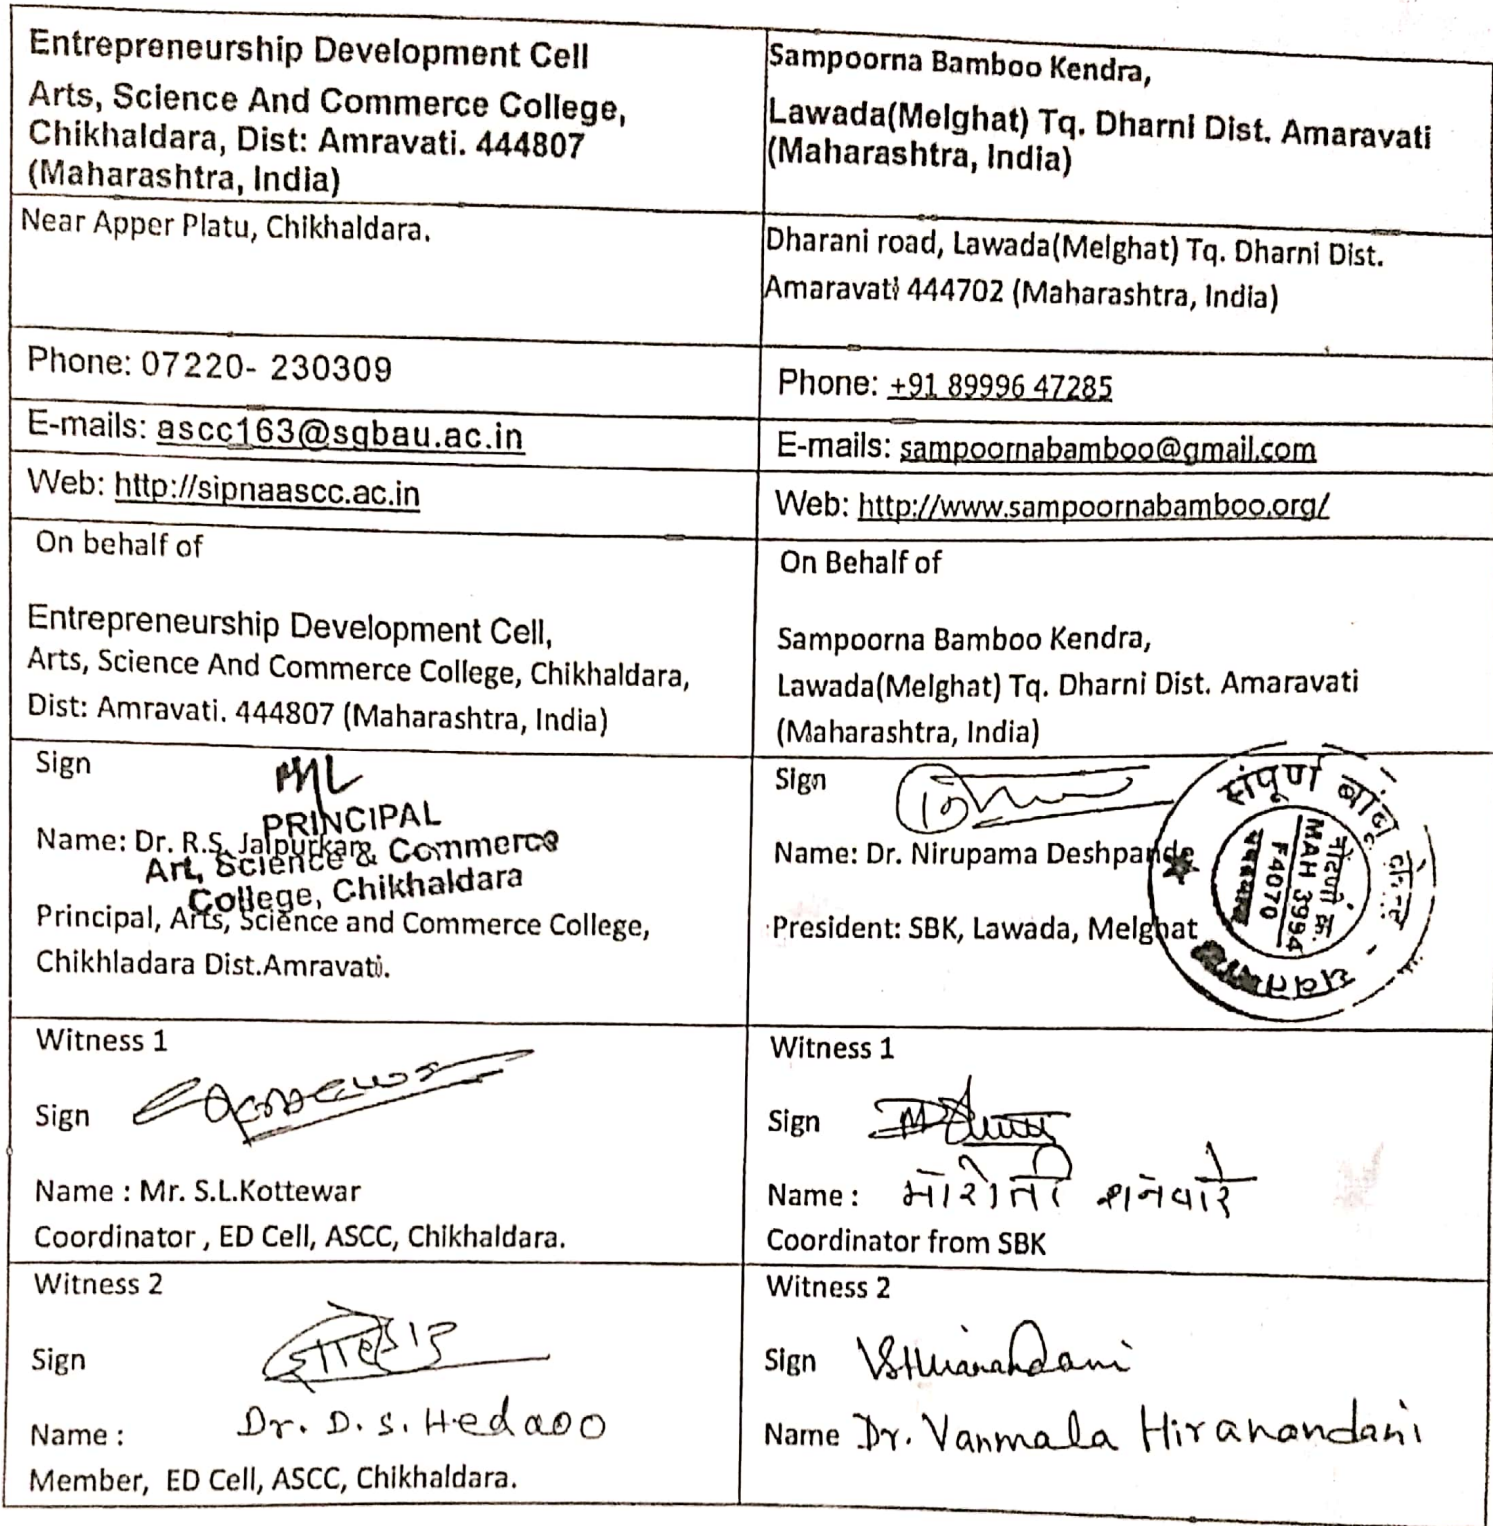 Entrepreneurship Development Cell
Arts, Science And Commerce College,
Chikhaldara, Dist: Amravati. 444807
(Maharashtra, India)
Sampoorna Bamboo Kendra,
Lawada(Melghat) Tq. Dharni Dist. Amaravati
(Maharashtra, India)
Near Apper Platu, Chikhaldara.
Dharani road, Lawada(Melghat) Tq. Dharni Dist.
Amaravati 444702 (Maharashtra, India)
Phone: 07220- 230309
Phone: +91 89996 47285
E-mails: ascc163@sgbau.ac.in
E-mails: sampoornabamboo@gmail.com
Web: http://sipnaascc.ac.in
Web: http://www.sampoornabamboo.org/
On behalf of
Entrepreneurship Development Cell,
Arts, Science And Commerce College, Chikhaldara,
Dist: Amravati. 444807 (Maharashtra, India)
On Behalf of
Sampoorna Bamboo Kendra,
Lawada(Melghat) Tq. Dharni Dist. Amaravati
(Maharashtra, India)
Sign
PRINCIPAL
Name: Dr. R.S. Jaipurkar
Art, Science & Commerce
College, Chikhaldara
Principal, Arts, Science and Commerce College,
Chikhladara Dist.Amravati.
Sign
Name: Dr. Nirupama Deshpande
President: SBK, Lawada, Melghat
संपूर्ण बांबू केन्द्र
नोंदणी क्र.
MAH 3994
F4070
Witness 1
Sign
Name : Mr. S.L.Kottewar
Coordinator , ED Cell, ASCC, Chikhaldara.
Witness 1
Sign
Name : मारोती शनवारे
Coordinator from SBK
Witness 2
Sign
Name : Dr. D. S. Hedaoo
Member, ED Cell, ASCC, Chikhaldara.
Witness 2
Sign VSHiranandani
Name Dr. Vanmala Hiranandani